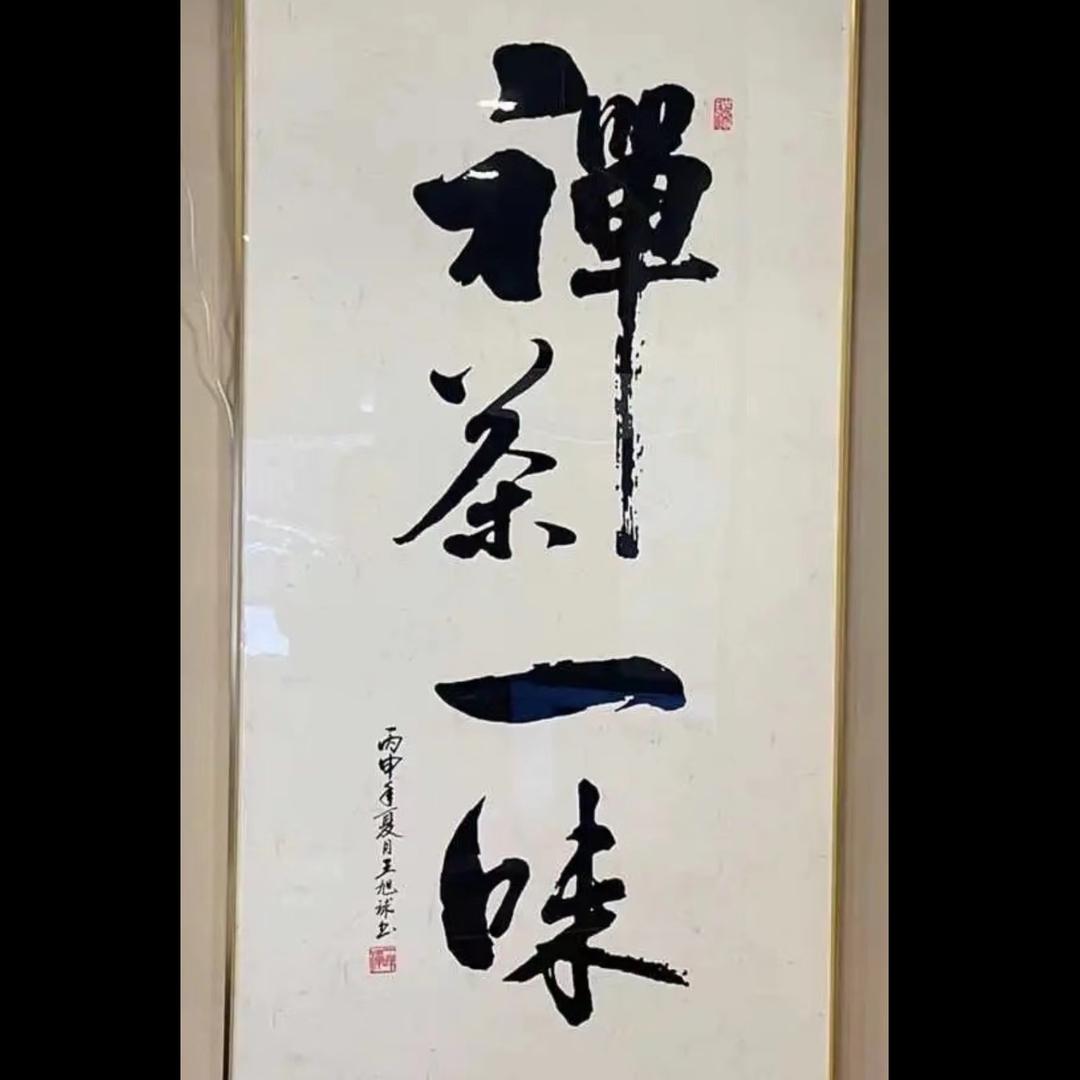 禪茶一味
丙申年夏月王旭球书